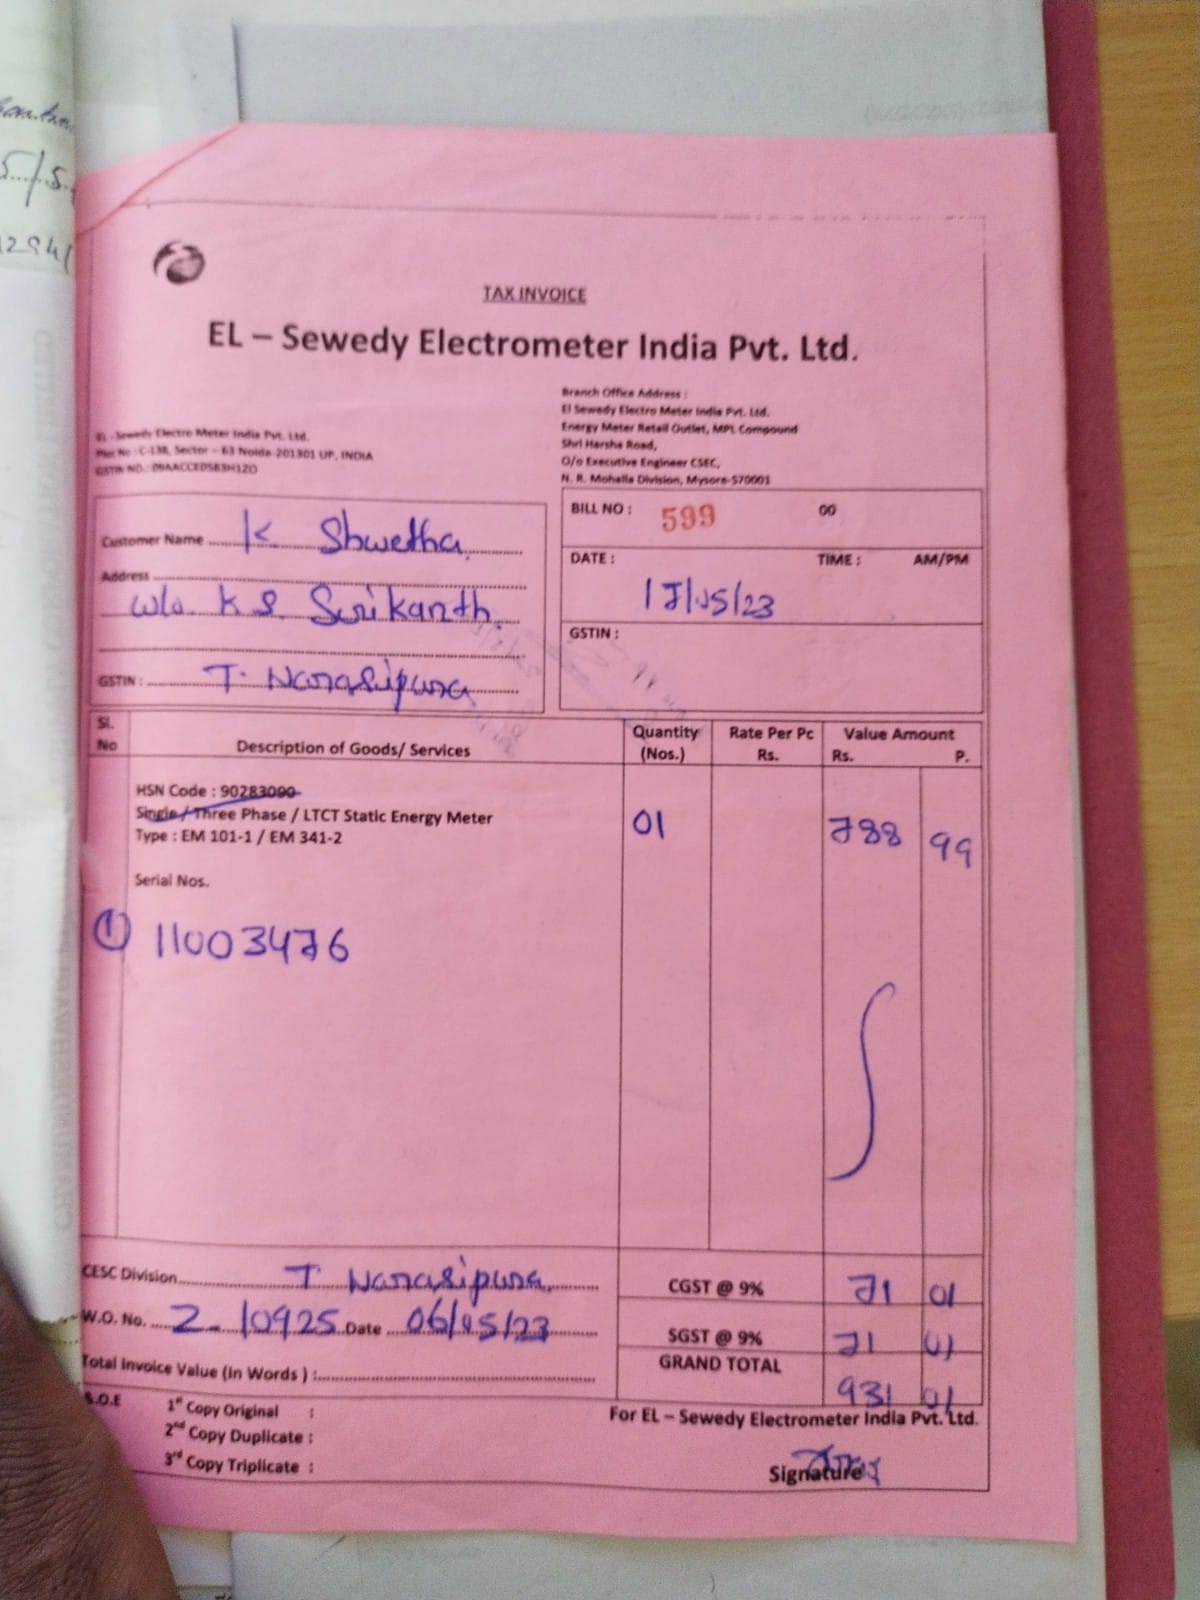 TAX INVOICE
EL – Sewedy Electrometer India Pvt. Ltd.
EL - Sewedy Electro Meter India Pvt. Ltd.
Plot No : C-138, Sector – 63 Noida-201301 UP, INDIA
GSTIN NO.: 09AACCE0583H1ZO
Branch Office Address :
El Sewedy Electro Meter India Pvt. Ltd.
Energy Meter Retail Outlet, MPL Compound
Shri Harsha Road,
O/o Executive Engineer CSEC,
N. R. Mohalla Division, Mysore-570001
Customer Name K Shwetha
Address
w/o. K S. Srikanth.
GSTIN : T. Narasipura
BILL NO : 599 00
DATE : TIME : AM/PM
17/05/23
GSTIN :
Sl. No Description of Goods/ Services Quantity (Nos.) Rate Per Pc Rs. Value Amount Rs. P.
HSN Code : 90283090
Single / Three Phase / LTCT Static Energy Meter 01 788 99
Type : EM 101-1 / EM 341-2
Serial Nos.
① 11003476
CESC Division T Narasipura
W.O. No. 2-10925 Date 06/05/23
Total Invoice Value (In Words ) :
CGST @ 9% 71 01
SGST @ 9% 71 01
GRAND TOTAL 931 01
E.O.E
1st Copy Original :
2nd Copy Duplicate :
3rd Copy Triplicate :
For EL – Sewedy Electrometer India Pvt. Ltd.
Signature